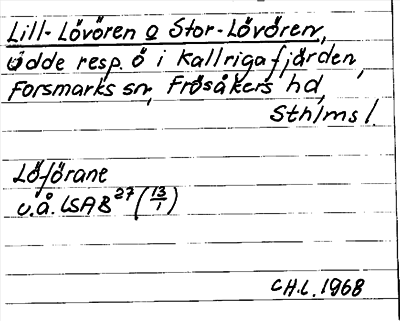 Lill-Lövören o Stor-Lövören,
udde resp. ö i Kallrigafjärden,
Forsmarks sn, Frösåkers hd,
Sthlms l.
Löförane
u.å. LSAB 27 (13/1)
CHL. 1968